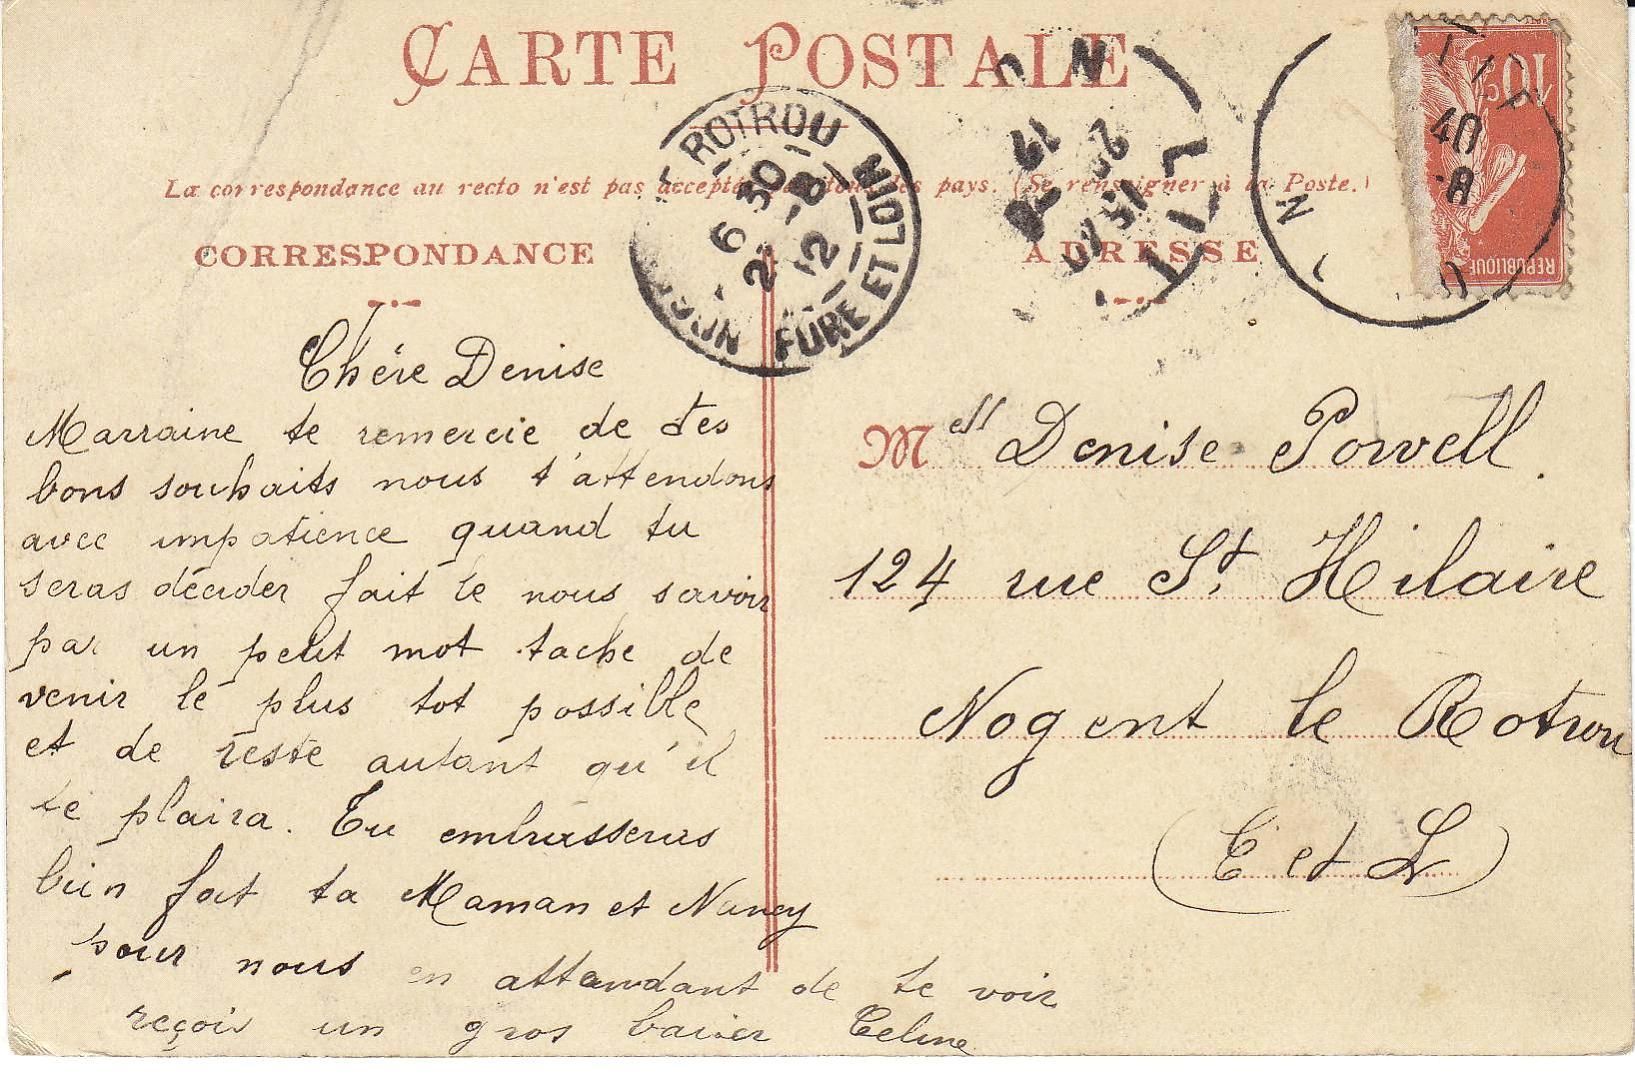 CARTE POSTALE
La correspondance au recto n'est pas acceptée tous pays. (Se renseigner à la Poste.)
CORRESPONDANCE
ADRESSE
ROTROU
EURE ET LOIR
6 30
2 -8
12
10c
REPUBLIQUE
Chére Denise
Marraine te remercie de tes
bons souhaits nous t'attendons
avec impatience quand tu
seras décider fait le nous savoir
par un petit mot tache de
venir le plus tot possible
et de reste autant qu'il
te plaira. Tu embrasseras
bien fort ta Maman et Nancy
pour nous en attendant de te voir
reçois un gros baiser Celine
Mell Denise Powell.
124 rue St Hilaire
Nogent le Rotrou
(E et L)